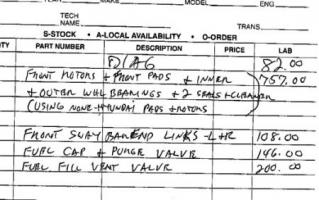 MAKE MODEL ENG.
TECH
NAME TRANS.
S-STOCK • A-LOCAL AVAILABILITY • O-ORDER
TY PART NUMBER DESCRIPTION PRICE LAB
DIAG 82.00
FRONT ROTORS + FRONT PADS + INNER 757.00
+ OUTER WHL BEARINGS + 2 SEALS +
(USING NONE-HYUNDAI PADS + ROTORS)
FRONT SWAY BAR END LINKS - L+R 108.00
FUEL CAP + PURGE VALVE 146.00
FUEL FILL VENT VALVE 200.00